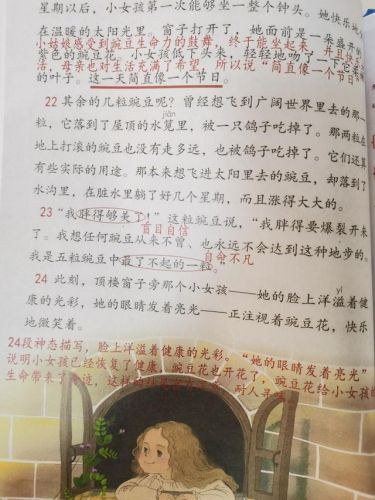 星期以后，小女孩第一次能够坐一整个钟头。她快乐地
在温暖的太阳光里。窗子打开了，她面前是一朵盛开的
小姑娘感受到豌豆生命力的鼓舞，终于能坐起来，并且快乐
紫色的豌豆花。小女孩低下头来，轻轻地吻了一下它柔嫩
活，母亲也对生活充满了希望，所以说“简直像一个节日”
的叶子。这一天简直像一个节日。
22 其余的几粒豌豆呢？曾经想飞到广阔世界里去的那一
jiǎn
粒，它落到了屋顶的水笕里，被一只鸽子吃掉了。那两粒在
地上打滚的豌豆也没有走多远，也被鸽子吃掉了。它们还算
有些实际的用途。那本来想飞进太阳里去的豌豆，却落到了
水沟里，在脏水里躺了好几个星期，而且涨得大大的。
23 “我胖得够美了！”这粒豌豆说，“我胖得要爆裂开来
盲目自信
了。我想任何豌豆从来不曾、也永远不会达到这种地步的。
我是五粒豌豆中最了不起的一粒。”
自命不凡
24 此刻，顶楼窗子旁那个小女孩——她的脸上洋溢着健
yì
康的光彩，她的眼睛发着亮光——正注视着豌豆花，快乐
地微笑着。
24段神态描写，脸上洋溢着健康的光彩。“她的眼睛发着亮光”
说明小女孩已经恢复了健康，豌豆花也开花了，豌豆花给小女孩的
生命带来了
耐人寻味